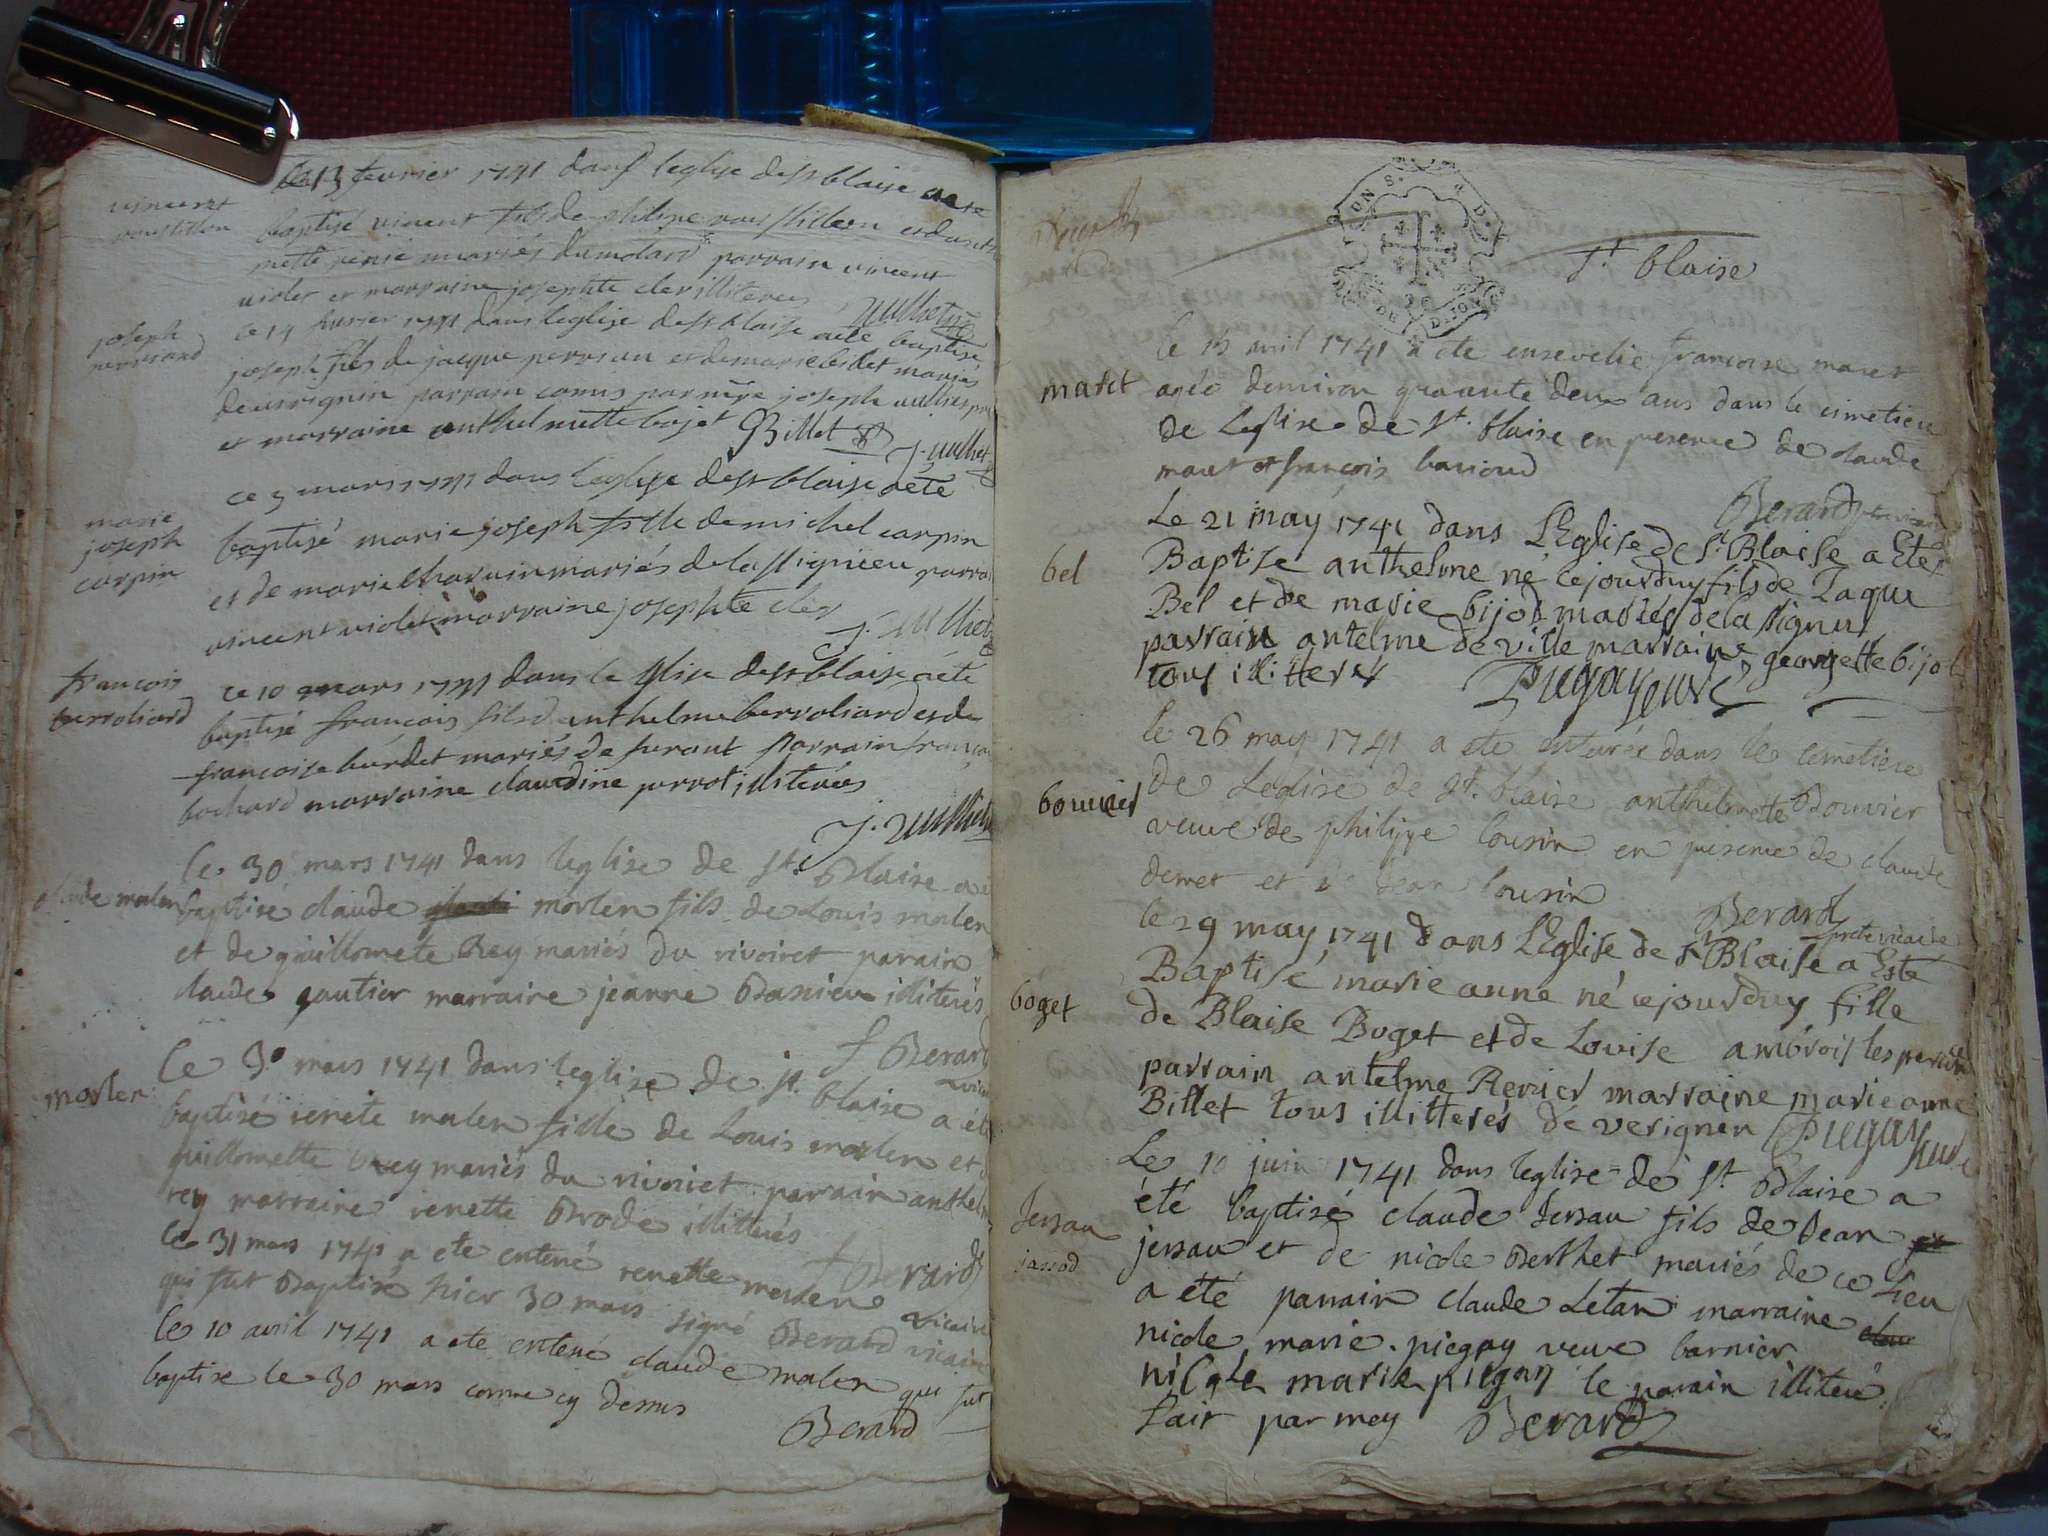 vincent
ce 13 fevrier 1741 dans leglise de st blaise a ete
baptisé vincent fils de philipe et dant
mette mariés dumolard parrain vincent
violet et marraine josephte cler illiteres
joseph
ce 14 fevrier 1741 dans leglise de st blaise a eté baptisé
joseph fils de jacque et de marie bidet mariés
parrain comis par joseph
et marraine anthelmette bojet Billet J. Jullliet
marie
joseph
carpin
ce 3 mars 1741 dans leglise de st blaise a eté
baptisé marie joseph fille de michel carpin
et de marie charvin mariés de lassignieu parrai
vincent violet marraine josephte cler
françois
berroliard
ce 10 mars 1741 dans le glise de st blaise a eté
baptisé françois fils danthelme berroliard et de
françoise burdet mariés de parrain françoi
bochard marraine claudine perrot illiterés
claude morlen
le 30 mars 1741 dans leglise de st blaise a
baptisé claude morlen fils de Louis morlen
et de guillomete Rey mariés du rivoiret parain
claude gautier marraine jeanne illiterés
Berard
morlen
le 30 mars 1741 dans leglise de st. blaise a été
baptisé renete morlen fille de Louis morlen et
guillomette rey mariés du rivoiret parain anthelm
rey marraine renette Brode illitterés
Berard
vicaire
le 31 mars 1741 a ete enteré renette morlen
qui fut Baptisé hier 30 mars signé Berard vicaire
le 10 avril 1741 a ete enteré claude morlen qui fut
baptise le 30 mars comme cy dessus
Berard
GEN
DE DIJON
St blaise
maret
le 13 avril 1741 a ete ensevelie francoise maret
agée denviron quarante deux ans dans le cimetiere
de Leglise de St. blaise en presence de claude
maret et françois barioud
Berard
bel
Le 21 may 1741 dans LEglise de St Blaise a Eté
Baptize anthelme né cejourdhuy fils de Jaque
Bel et de marie bijod mariés de la signeu
parrain antelme de ville marraine georgette bijot
tous illitterés Puegay curé
bouvier
le 26 may 1741 a ete enterée dans le cemetiere
de Leglise de St. blaise anthelmette Bouvier
veuve de philippe Cousin en presence de claude
demet et de Jean Cousin
Berard
pretre vicaire
boget
le 29 may 1741 dans LEglise de St Blaise a Esté
Baptisé marie anne né cejourduy fille
de Blaise Boget et de Louise ambrois
parrain antelme Renier marraine marie anne
Billet tous illitterés de verignen Puegay curé
Jersau
jassod
Le 10 juin 1741 dans leglise de St Blaise a
été baptisé claude Jersau fils de Jean
jersau et de nicole Berthet mariés de ce Lieu
a été parrain claude Letan marraine
nicole marie piegay veuve barnier
nicole marie piegay le parain illiteré
Fait par moy Berard